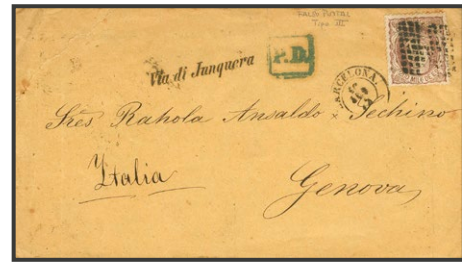 Tipo III
Via di Junquera
P.D.
BARCELONA
Sres Rahola Ansaldo y Sechino
Italia
Genova